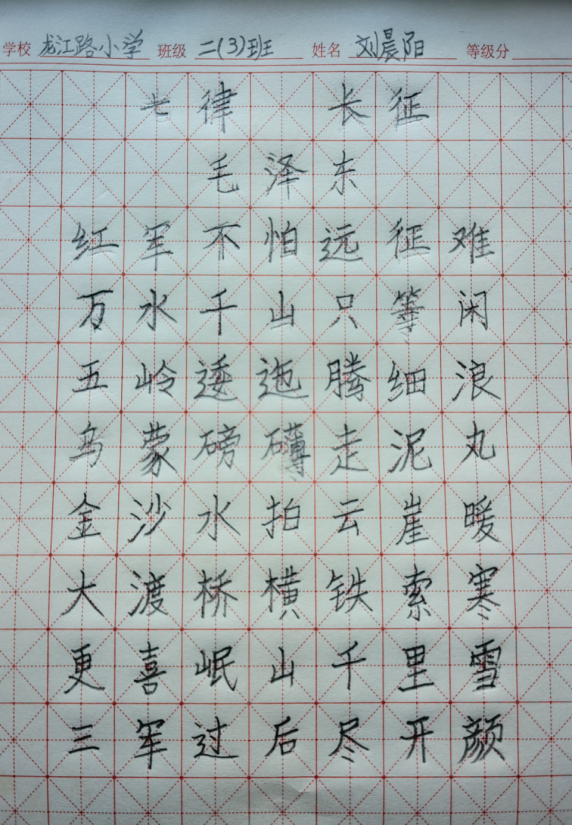 学校 龙江路小学 班级 二(3)班 姓名 刘晨阳 等级分
七律 长征
毛泽东
红军不怕远征难
万水千山只等闲
五岭逶迤腾细浪
乌蒙磅礴走泥丸
金沙水拍云崖暖
大渡桥横铁索寒
更喜岷山千里雪
三军过后尽开颜